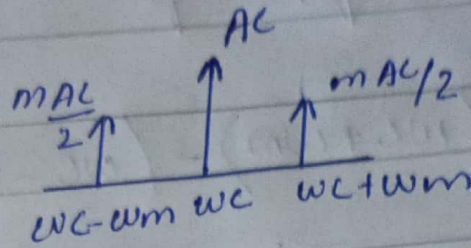 AC
mAC/2
mAC/2
wc-wm wc wc+wm